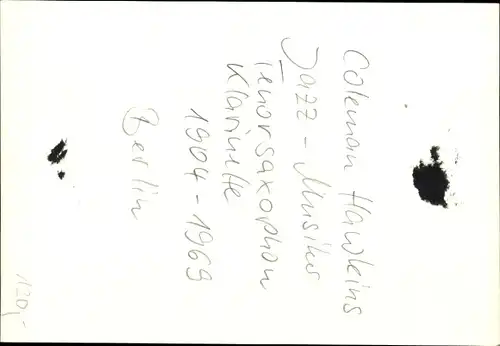 Coleman Hawkins
Jazz - Musiker
Tenorsaxophon
Klarinette
1904 - 1969
Berlin
1120,-